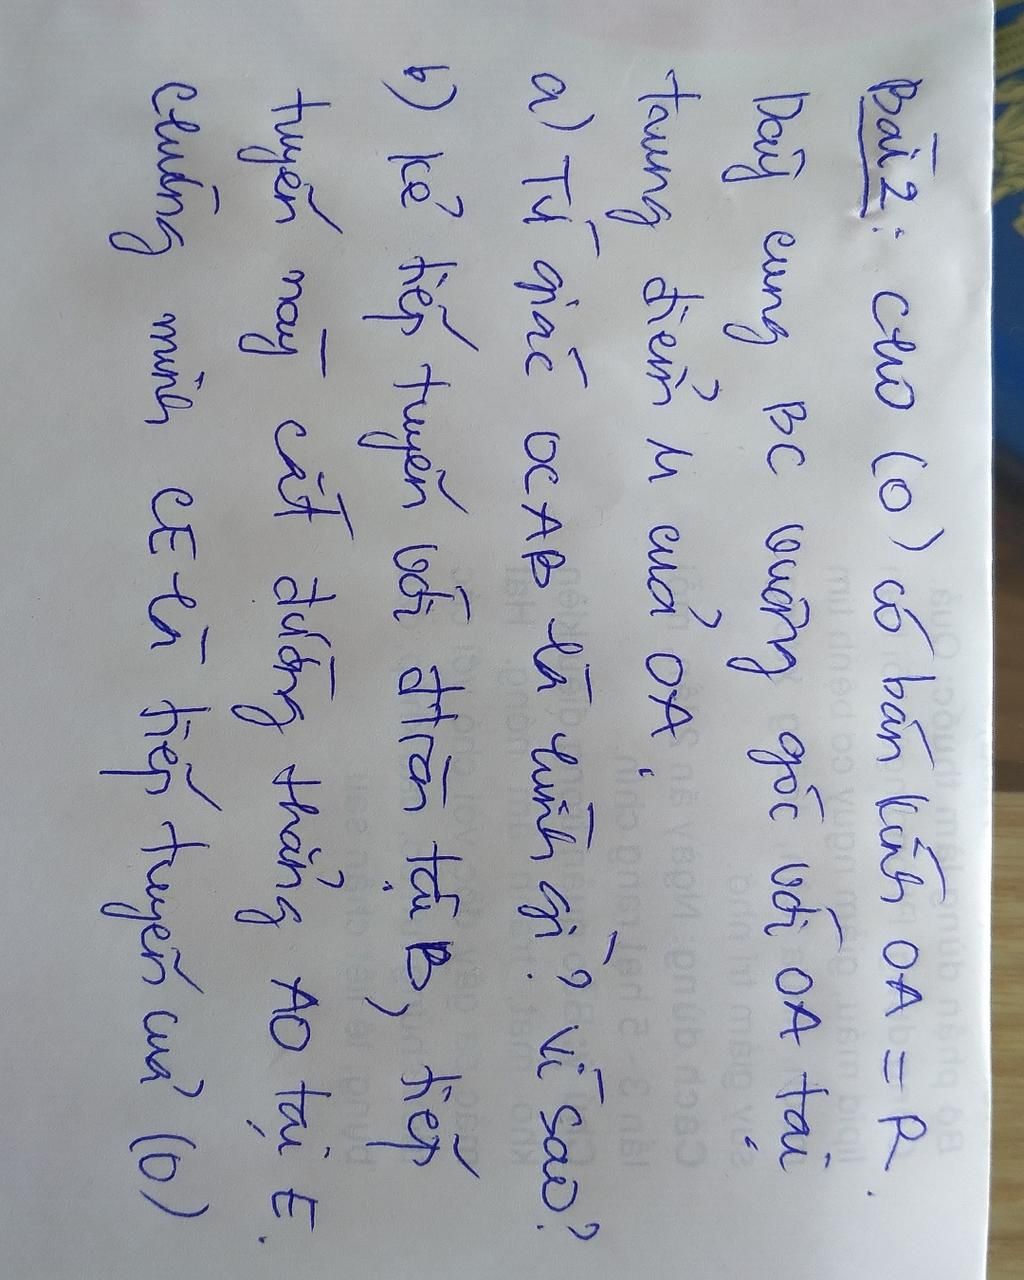 Bài 2: cho (O) có bán kính OA = R.
Dây cung BC vuông góc với OA tại
trung điểm M của OA.
a) Tứ giác OCAB là hình gì? Vì sao?
b) Kẻ tiếp tuyến với đtròn tại B, tiếp
tuyến này cắt đường thẳng AO tại E.
Chứng minh CE là tiếp tuyến của (O)